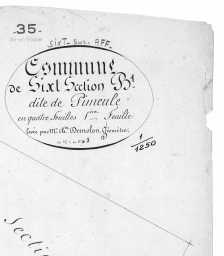 -35-
SIXT-SUR-AFF.
Commune
de Sixt Section B.
dite de Pimeule
en quatre feuilles 1ère feuille
levée par Mr. Demolon, Géomètre.
1
1250
Section